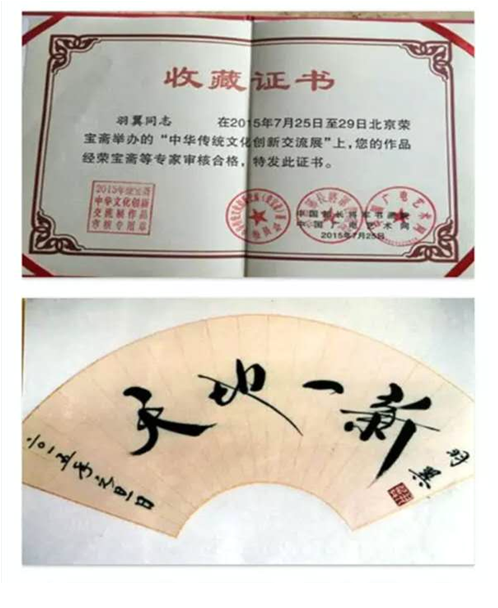 收藏证书
羽翼同志 在2015年7月25日至29日北京荣
宝斋举办的“中华传统文化创新交流展”上,您的作品
经荣宝斋等专家审核合格,特发此证书。
2015年
中华文化创新
交流展作品
审核专用章
中国广电艺术网
2015年7月25日
天地一新
羽翼
二〇一五年元旦日